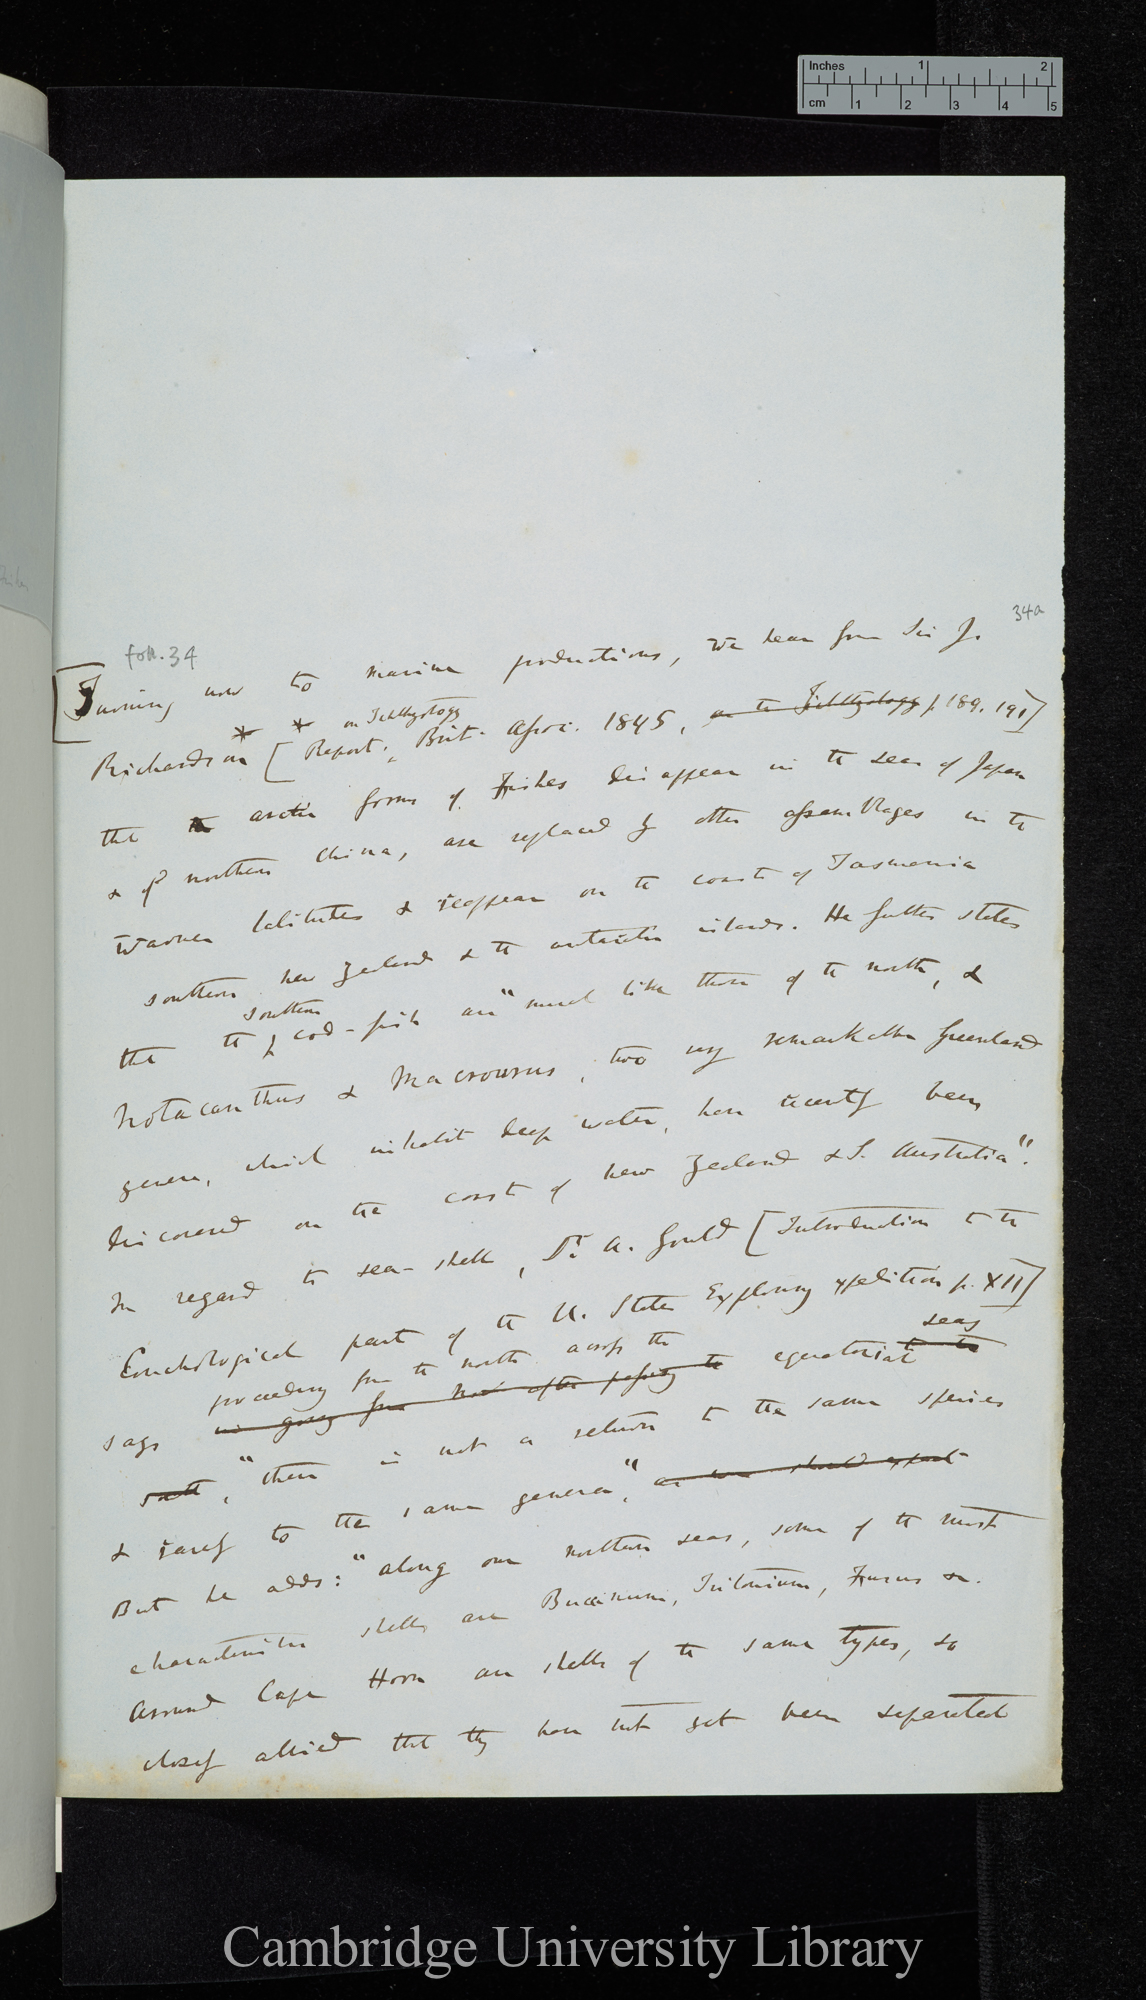 Inches 1 2
cm 1 2 3 4 5
34a
foll. 34
[Turning now to marine productions, we hear from Sir J.
on Ichthyology
Richardson * * [Report. Brit. Assoc. 1845, on the Ichthyology p 189. 191]
that the arctic forms of Fishes disappear in the seas of Japan
& of northern China, are replaced by other assemblages in the
warmer latitudes & reappear on the coasts of Tasmania
southern New Zealand & the antarctic islands. He further states
southern
that the cod-fish are "much like those of the north, &
Notacanthus & Macrourus, two very remarkable Greenland
genera, which inhabit deep water, have recently been
discovered on the coast of New Zealand & S. Australia".
In regard to sea-shells, Dr. A. Gould [Introduction to the
Conchological part of the U. States Exploring Expedition p. XII]
seas
proceeding from the north across the
says in going from North after passing the equatorial to the
south, "there is not a return to the same species
& rarely to the same genera", as we should expect
But he adds: "along our northern seas, some of the most
characteristic shells are Buccinum, Tritonium, Fusus &c.
Around Cape Horn are shells of the same types, so
closely allied that they have not yet been separated
Cambridge University Library